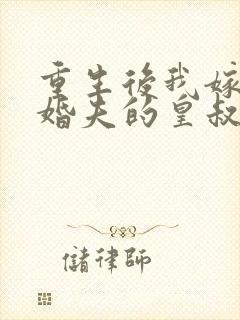 重生後我嫁
婚夫的皇叔
儲律師